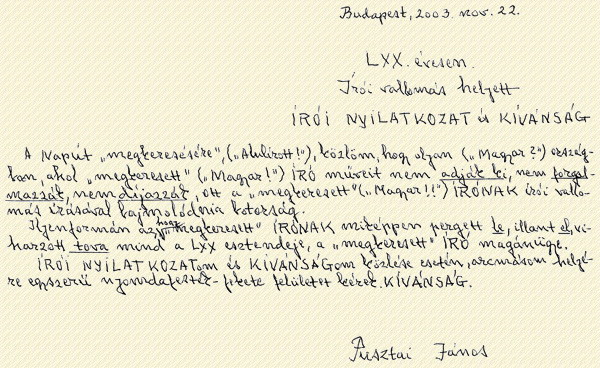 Budapest, 2003. nov. 22.
LXX. évesen.
Írói vallomás helyett
ÍRÓI NYILATKOZAT és KÍVÁNSÁG
A Napút „megkeresésére”, („Alulírott!”), közlöm, hogy olyan („Magyar?”) ország-
ban, ahol „megkeresett” („Magyar!”) ÍRÓ műveit nem adják ki, nem forgal-
mazzák, nem díjazzák, ott a „megkeresett” („Magyar!!”) ÍRÓNAK írói vallo-
más írásával bajmolódnia botorság.
Ilyenformán az, hogy „megkeresett” ÍRÓNAK miképpen pergett le, illant el, vi-
harzott tova mind a LXX esztendeje, a „megkeresett” ÍRÓ magánügye.
ÍRÓI NYILATKOZATom és KÍVÁNSÁGom közlése esetén, arcmásom helyé-
re egyszerű nyomdafesték-fekete felületet kérek. KÍVÁNSÁG.
Pusztai János